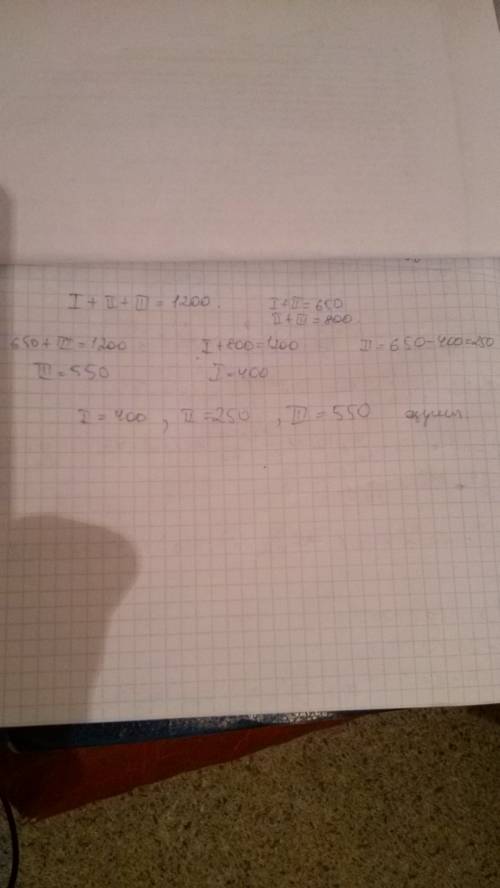 I + II + III = 1200. I+II=650
II+III=800
650+III=1200 I+800=1200 II=650-400=250
III=550 I=400
I=400, II=250, III=550